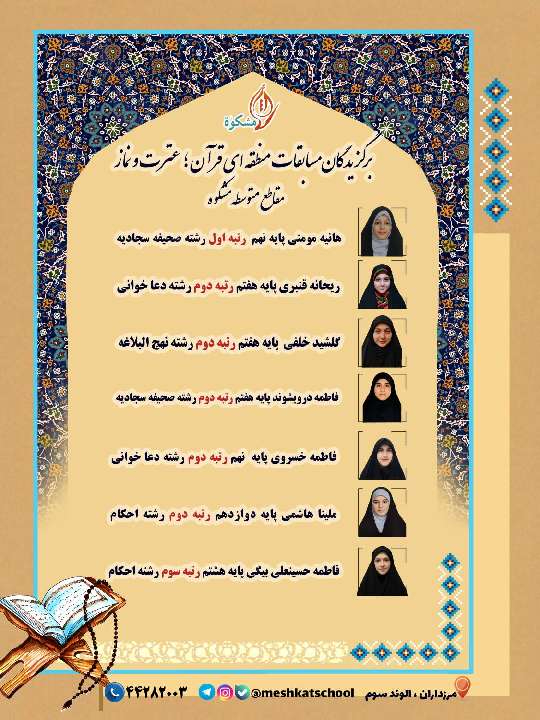 مشکوة
برگزیدگان مسابقات منطقه ای قرآن؛ عترت و نماز
مقاطع متوسطه مشکوه
هانیه مومنی پایه نهم رتبه اول رشته صحیفه سجادیه
ریحانه قنبری پایه هفتم رتبه دوم رشته دعا خوانی
گلشید خلفی پایه هفتم رتبه دوم رشته نهج البلاغه
فاطمه درویشوند پایه هفتم رتبه دوم رشته صحیفه سجادیه
فاطمه خسروی پایه نهم رتبه دوم رشته دعا خوانی
ملینا هاشمی پایه دوازدهم رتبه دوم رشته احکام
فاطمه حسینعلی بیگی پایه هشتم رتبه سوم رشته احکام
مرزداران ، الوند سوم @meshkatschool ۴۴۲۸۲۰۰۳